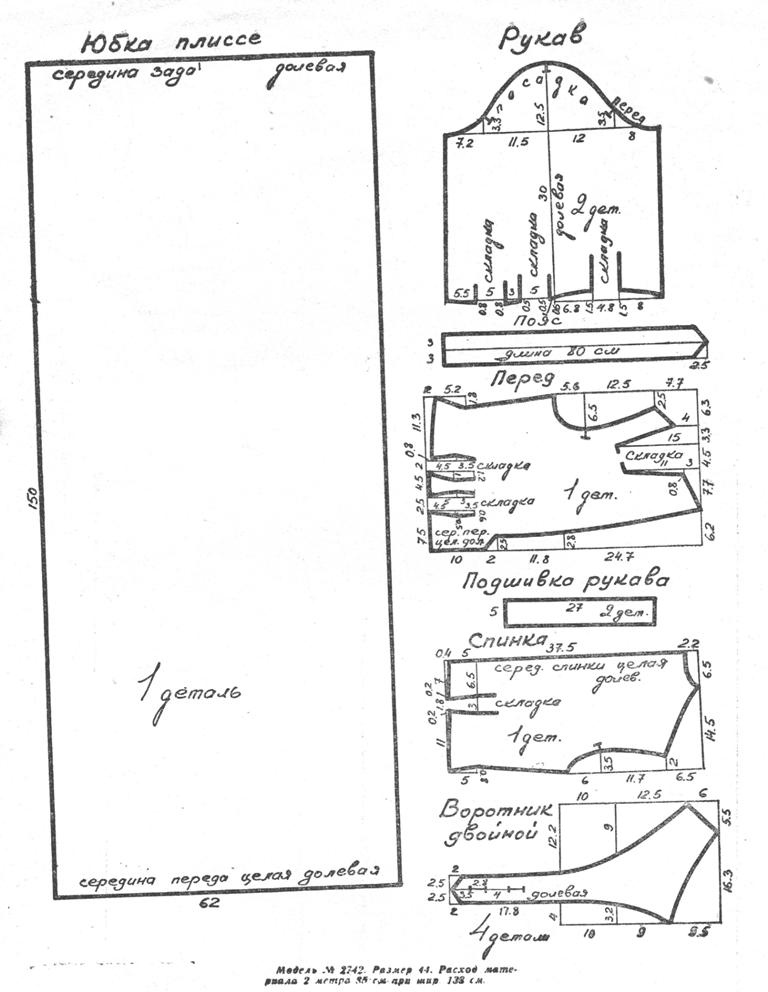 Юбка плиссе
середина зада
долевая
150
1 деталь
середина переда целая долевая
62
Рукав
посадка
перед
3.3
12.5
3.5
7.2
11.5
12
8
30
долевая
2 дет.
складка
складка
складка
5.5
5
3
5
0.8
0.8
0.5
0.5
6.8
1.5
4.8
1.5
8
Пояс
3
3
длина 80 см
2.5
Перед
2
5.2
1.8
5.6
12.5
7.7
11.3
6.5
2.5
4
6.3
3.3
15
складка
4.5
11
3
0.8
2
4.5
3.5
складка
4.5
1 дет.
0.8
7.7
2.5
4.5
3.5
складка
7.5
сер. пер.
цел. дол
10
2
2.5
11.8
2.8
24.7
6.2
Подшивка рукава
5
27
2 дет.
Спинка
0.4
5
37.5
2.2
серед. спинки целая
долев.
7
6.5
6.5
0.2
1.8
складка
0.2
3
11
1 дет.
14.5
5
6
3.5
11.7
2
6.5
Воротник
двойной
10
12.5
6
12.2
9
5.5
2
2.5
2.5
3.5
4
долевая
2
17.8
16.3
4
3.2
4 детали
10
9
9.5
Модель № 2742. Размер 44. Расход мате-
риала 2 метра 85 см при шир. 138 см.